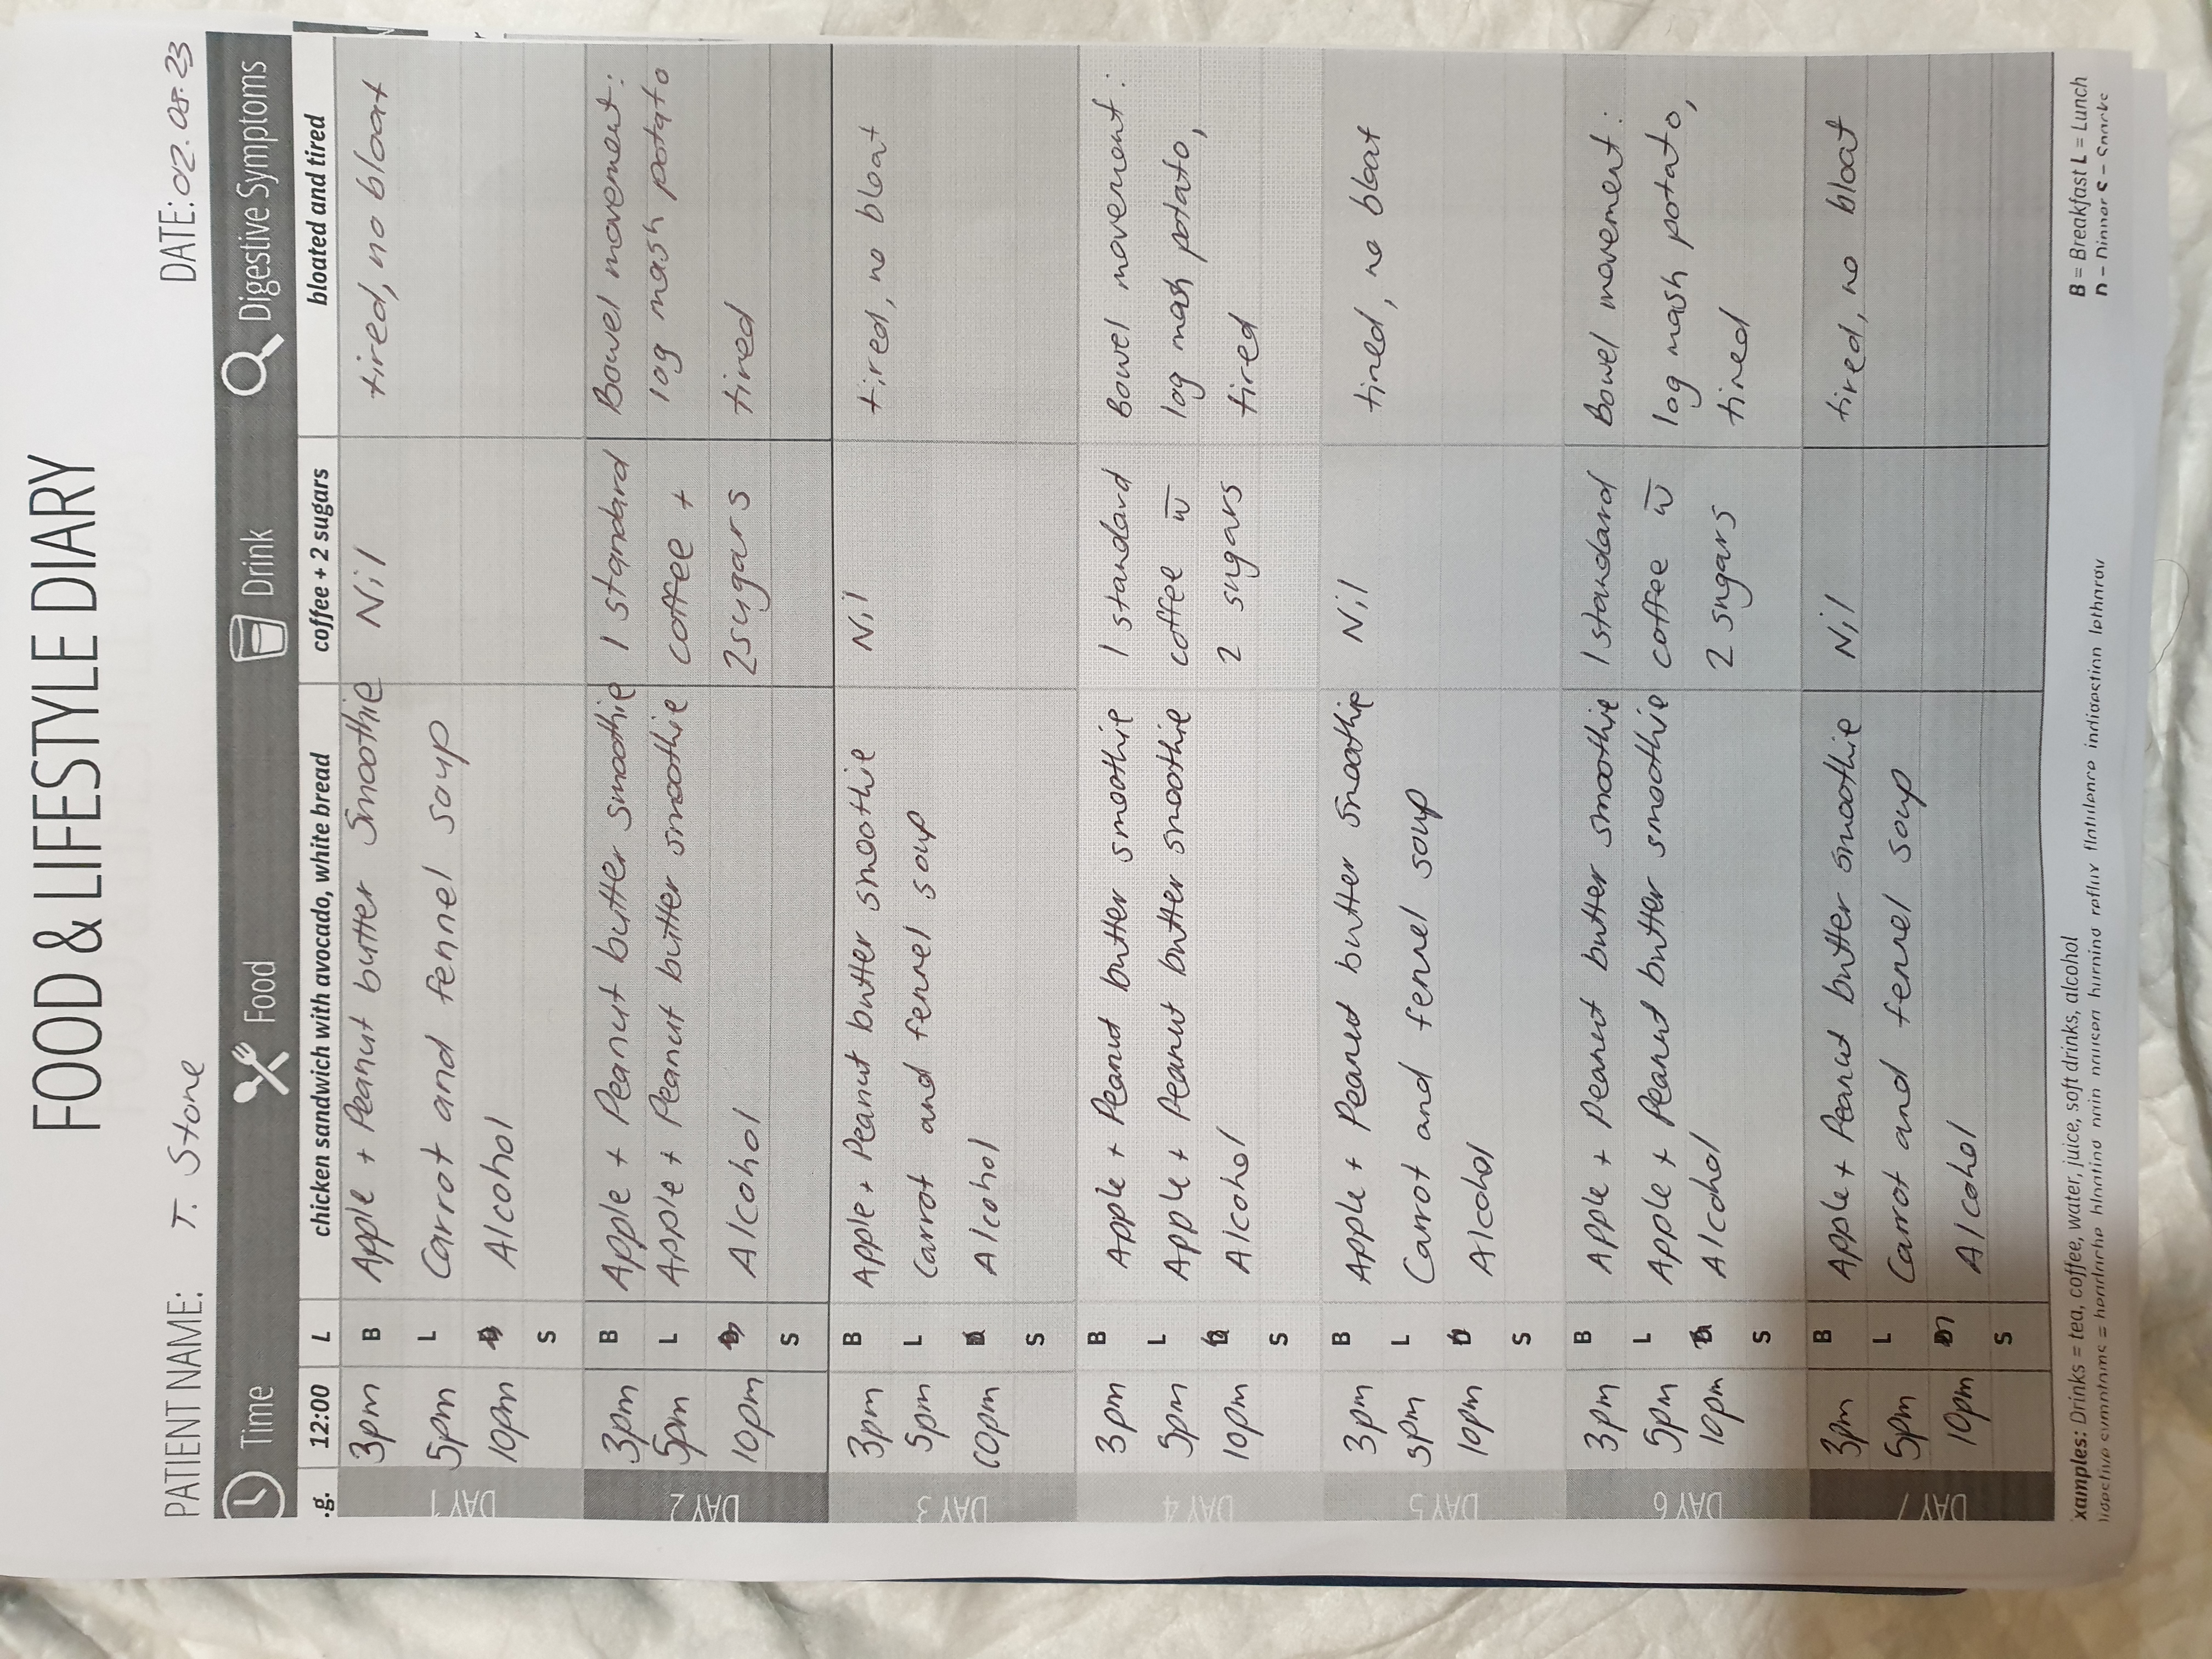 FOOD & LIFESTYLE DIARY
PATIENT NAME: T. Stone DATE: 02.08.23
Time Food Drink Digestive Symptoms
.g. 12:00 L chicken sandwich with avocado, white bread coffee + 2 sugars bloated and tired
DAY 1
3pm B Apple + Peanut butter Smoothie Nil tired, no bloat
5pm L Carrot and fennel soup
10pm Alcohol
S
DAY 2
3pm B Apple + Peanut butter smoothie 1 standard Bowel movement:
5pm L Apple + Peanut butter smoothie coffee + log mash potato
10pm Alcohol 2sugars tired
S
DAY 3
3pm B Apple + Peanut butter smoothie Nil tired, no bloat
5pm L Carrot and fennel soup
10pm Alcohol
S
DAY 4
3pm B Apple + Peanut butter smoothie 1 standard Bowel movement:
5pm L Apple + Peanut butter smoothie coffee w̅ log mash potato,
10pm Alcohol 2 sugars tired
S
DAY 5
3pm B Apple + Peanut butter smoothie Nil tired, no bloat
5pm L Carrot and fennel soup
10pm Alcohol
S
DAY 6
3pm B Apple + Peanut butter smoothie 1 standard Bowel movement:
5pm L Apple + Peanut butter smoothie coffee w̅ log mash potato,
10pm Alcohol 2 sugars tired
S
DAY 7
3pm B Apple + Peanut butter smoothie Nil tired, no bloat
5pm L Carrot and fennel soup
10pm Alcohol
S
xamples: Drinks = tea, coffee, water, juice, soft drinks, alcohol B = Breakfast L = Lunch